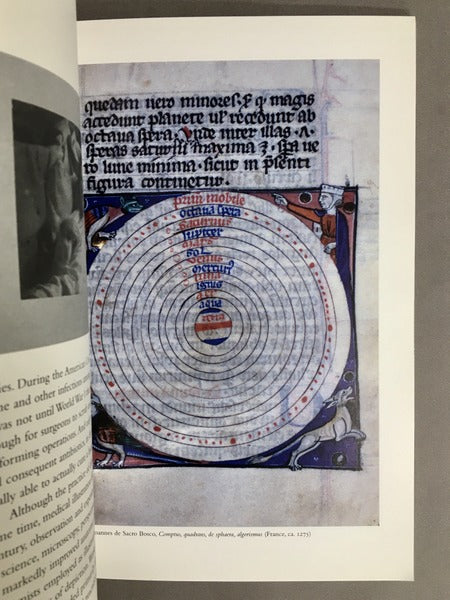 quedam uero minores. & q magis
accedunt planete ul' recedunt ab
octaua spera. Unde inter illas
speras saturni maxima spa ue
ro lune minima. sicut in psenti
figura continetur.
prim mobile
octaua spera
saturnus
Jupiter
mars
sol
venus
mercuri9
luna
ignis
aer
aqua
terra
During the American
and other infections
was not until World War
for surgeons to
forming operations.
consequent
able to actually
Although the
time, medical
observation
science, microscopy,
markedly improved
employed is
of depiction
de Sacro Bosco, Comptus, quadrans, de sphaera, algorismus (France, ca. 1275)